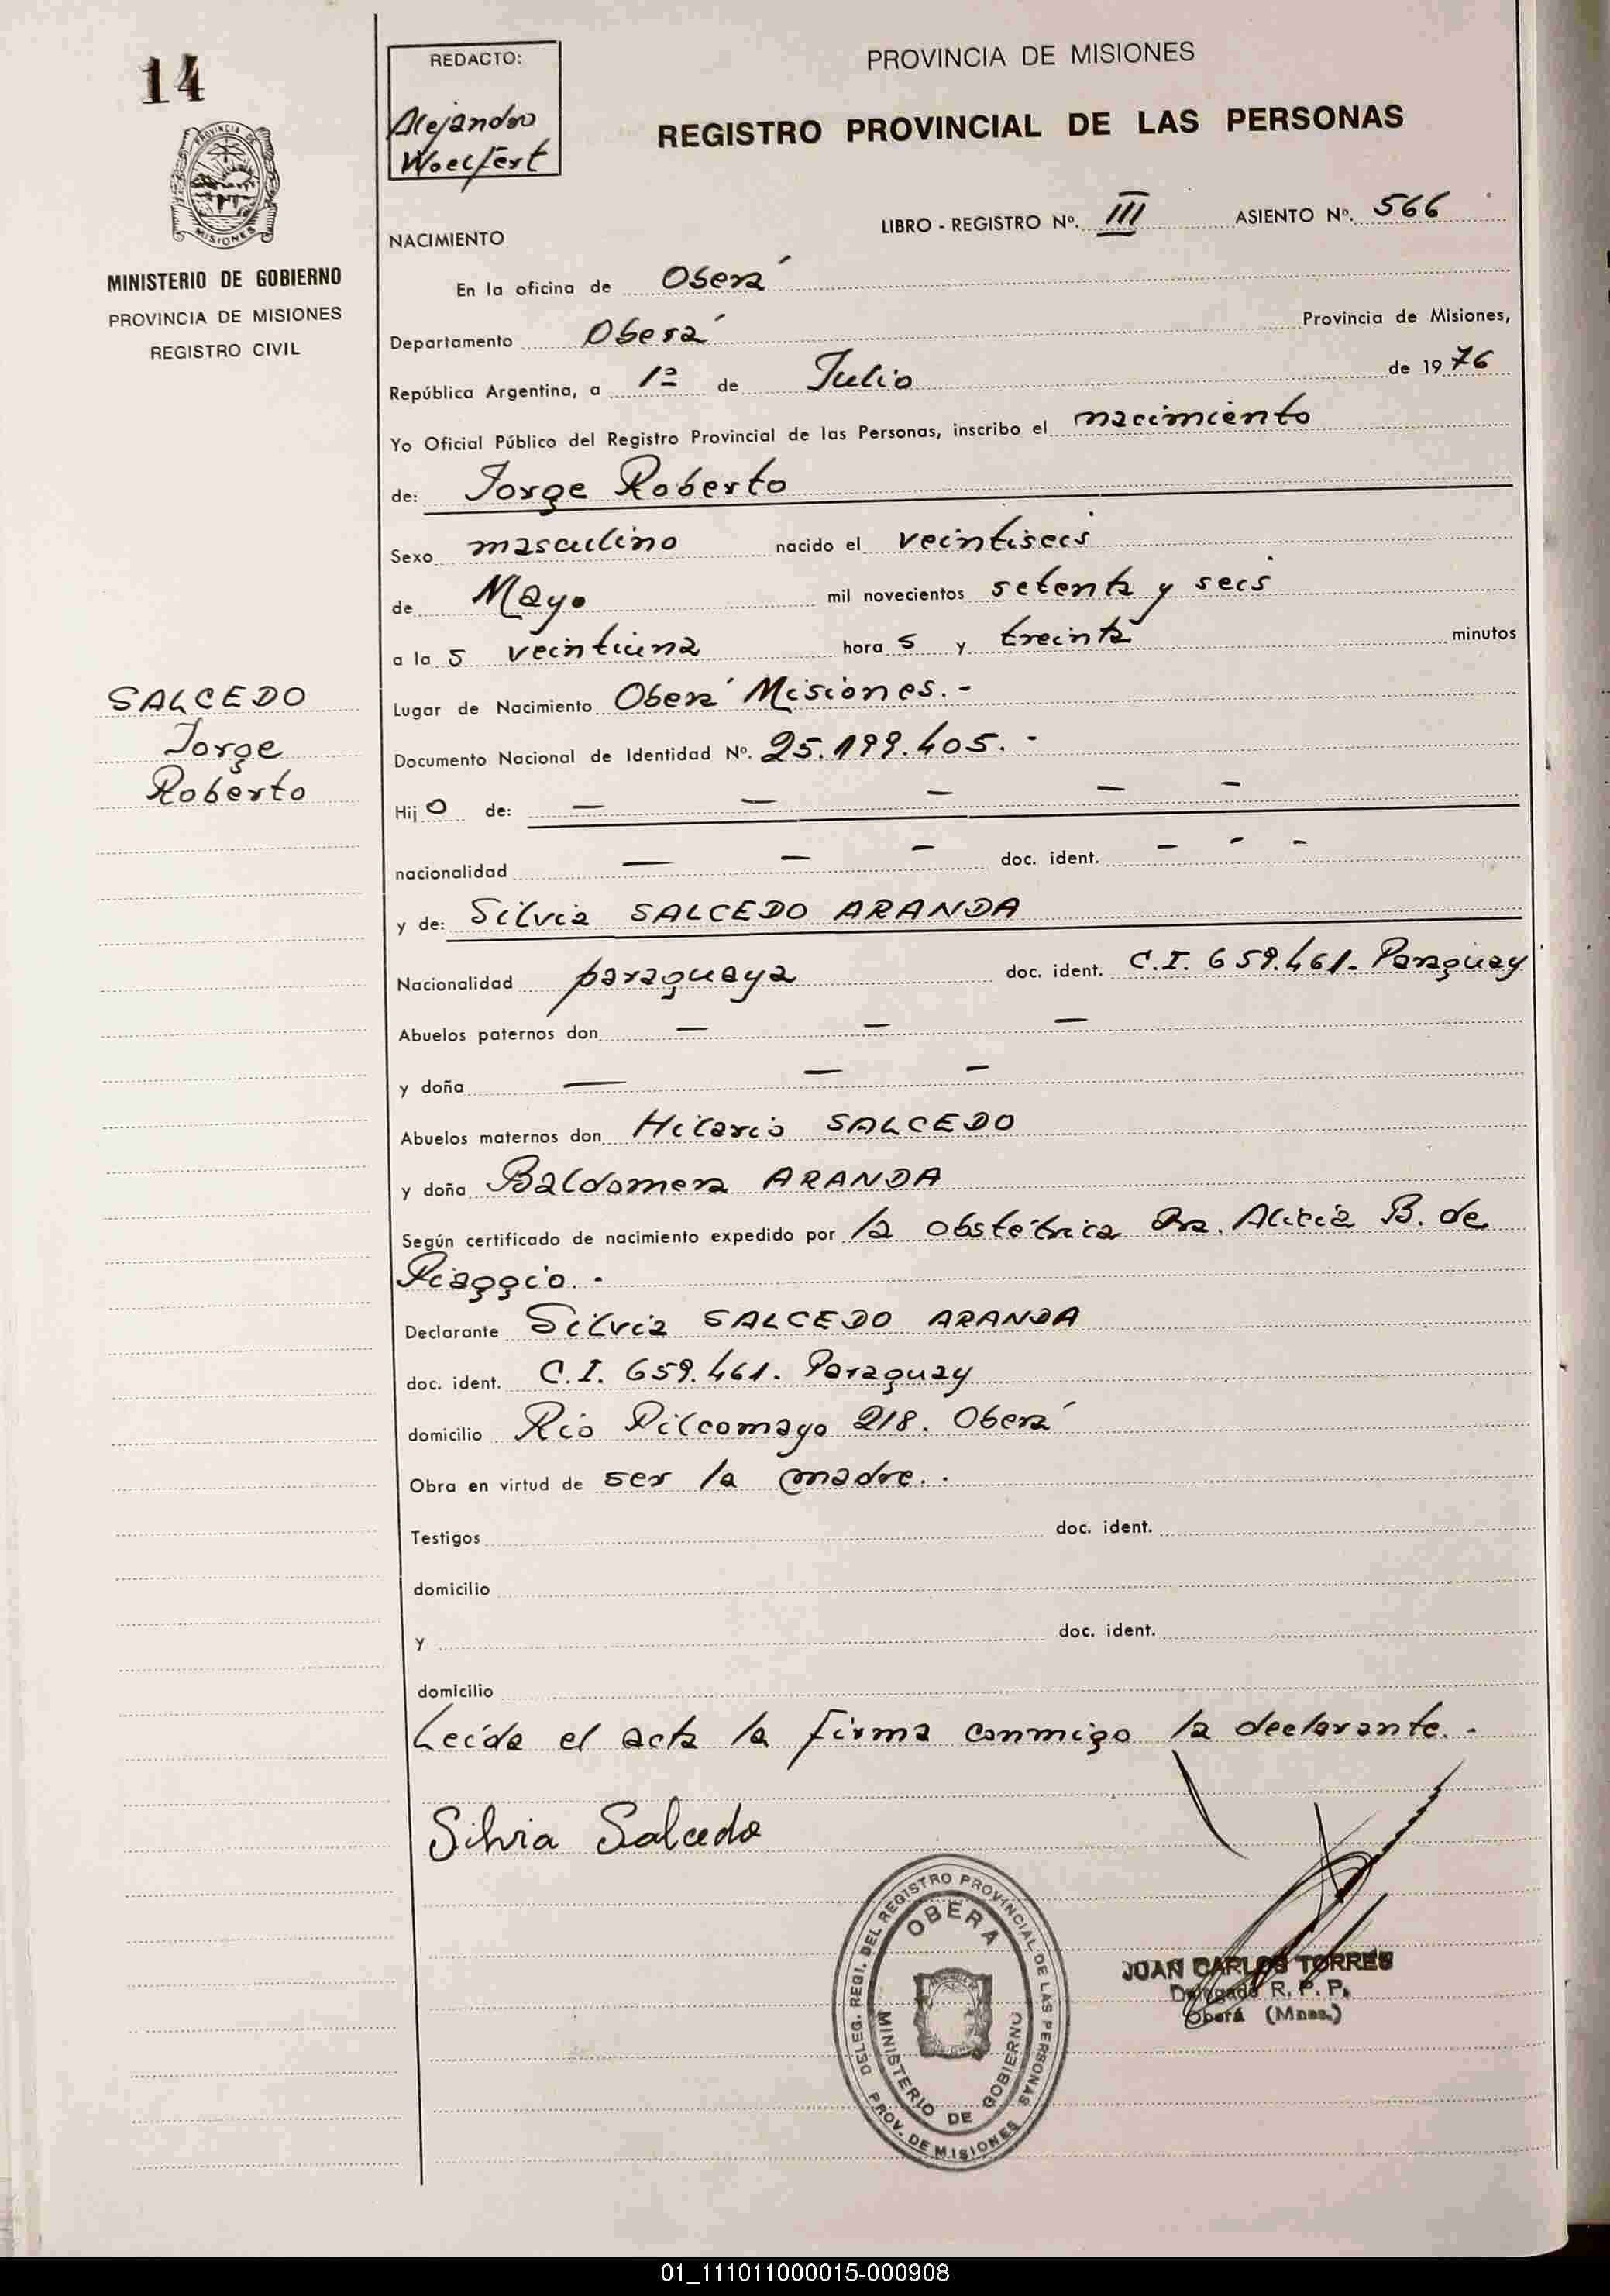 14
REDACTO:
Alejandro
Woelfert
PROVINCIA DE MISIONES
REGISTRO PROVINCIAL DE LAS PERSONAS
PROVINCIA DE
MISIONES
MINISTERIO DE GOBIERNO
PROVINCIA DE MISIONES
REGISTRO CIVIL
LIBRO - REGISTRO Nº. III ASIENTO Nº. 566
NACIMIENTO
En la oficina de Oberá
Departamento Oberá Provincia de Misiones,
República Argentina, a 1º de Julio de 1976
Yo Oficial Público del Registro Provincial de las Personas, inscribo el nacimiento
de: Jorge Roberto
Sexo masculino nacido el veintiseis
de Mayo mil novecientos setenta y seis
a la s veintiuna hora s y treinta minutos
SALCEDO
Jorge
Roberto
Lugar de Nacimiento Oberá Misiones.-
Documento Nacional de Identidad Nº. 25.199.405.-
Hij o de: — — — — —
nacionalidad — — — doc. ident. — - -
y de: Silvia SALCEDO ARANDA
Nacionalidad paraguaya doc. ident. C.I. 659.461- Paraguay
Abuelos paternos don — — —
y doña — — —
Abuelos maternos don Hilario SALCEDO
y doña Baldomera ARANDA
Según certificado de nacimiento expedido por la obstétrica Dra. Alicia B. de
Piaggio.-
Declarante Silvia SALCEDO ARANDA
doc. ident. C.I. 659.461. Paraguay
domicilio Rio Pilcomayo 218. Oberá
Obra en virtud de ser la madre..
Testigos doc. ident.
domicilio
y doc. ident.
domicilio
Leída el acta la firma conmigo la declarante.-
Silvia Salcedo
DELEG. REGI. DEL REGISTRO PROVINCIAL DE LAS PERSONAS
OBERA
MINISTERIO DE GOBIERNO
PROV. DE MISIONES
JUAN CARLOS TORRES
Delegado R. P. P.
Oberá (Mnes.)
01_111011000015-000908